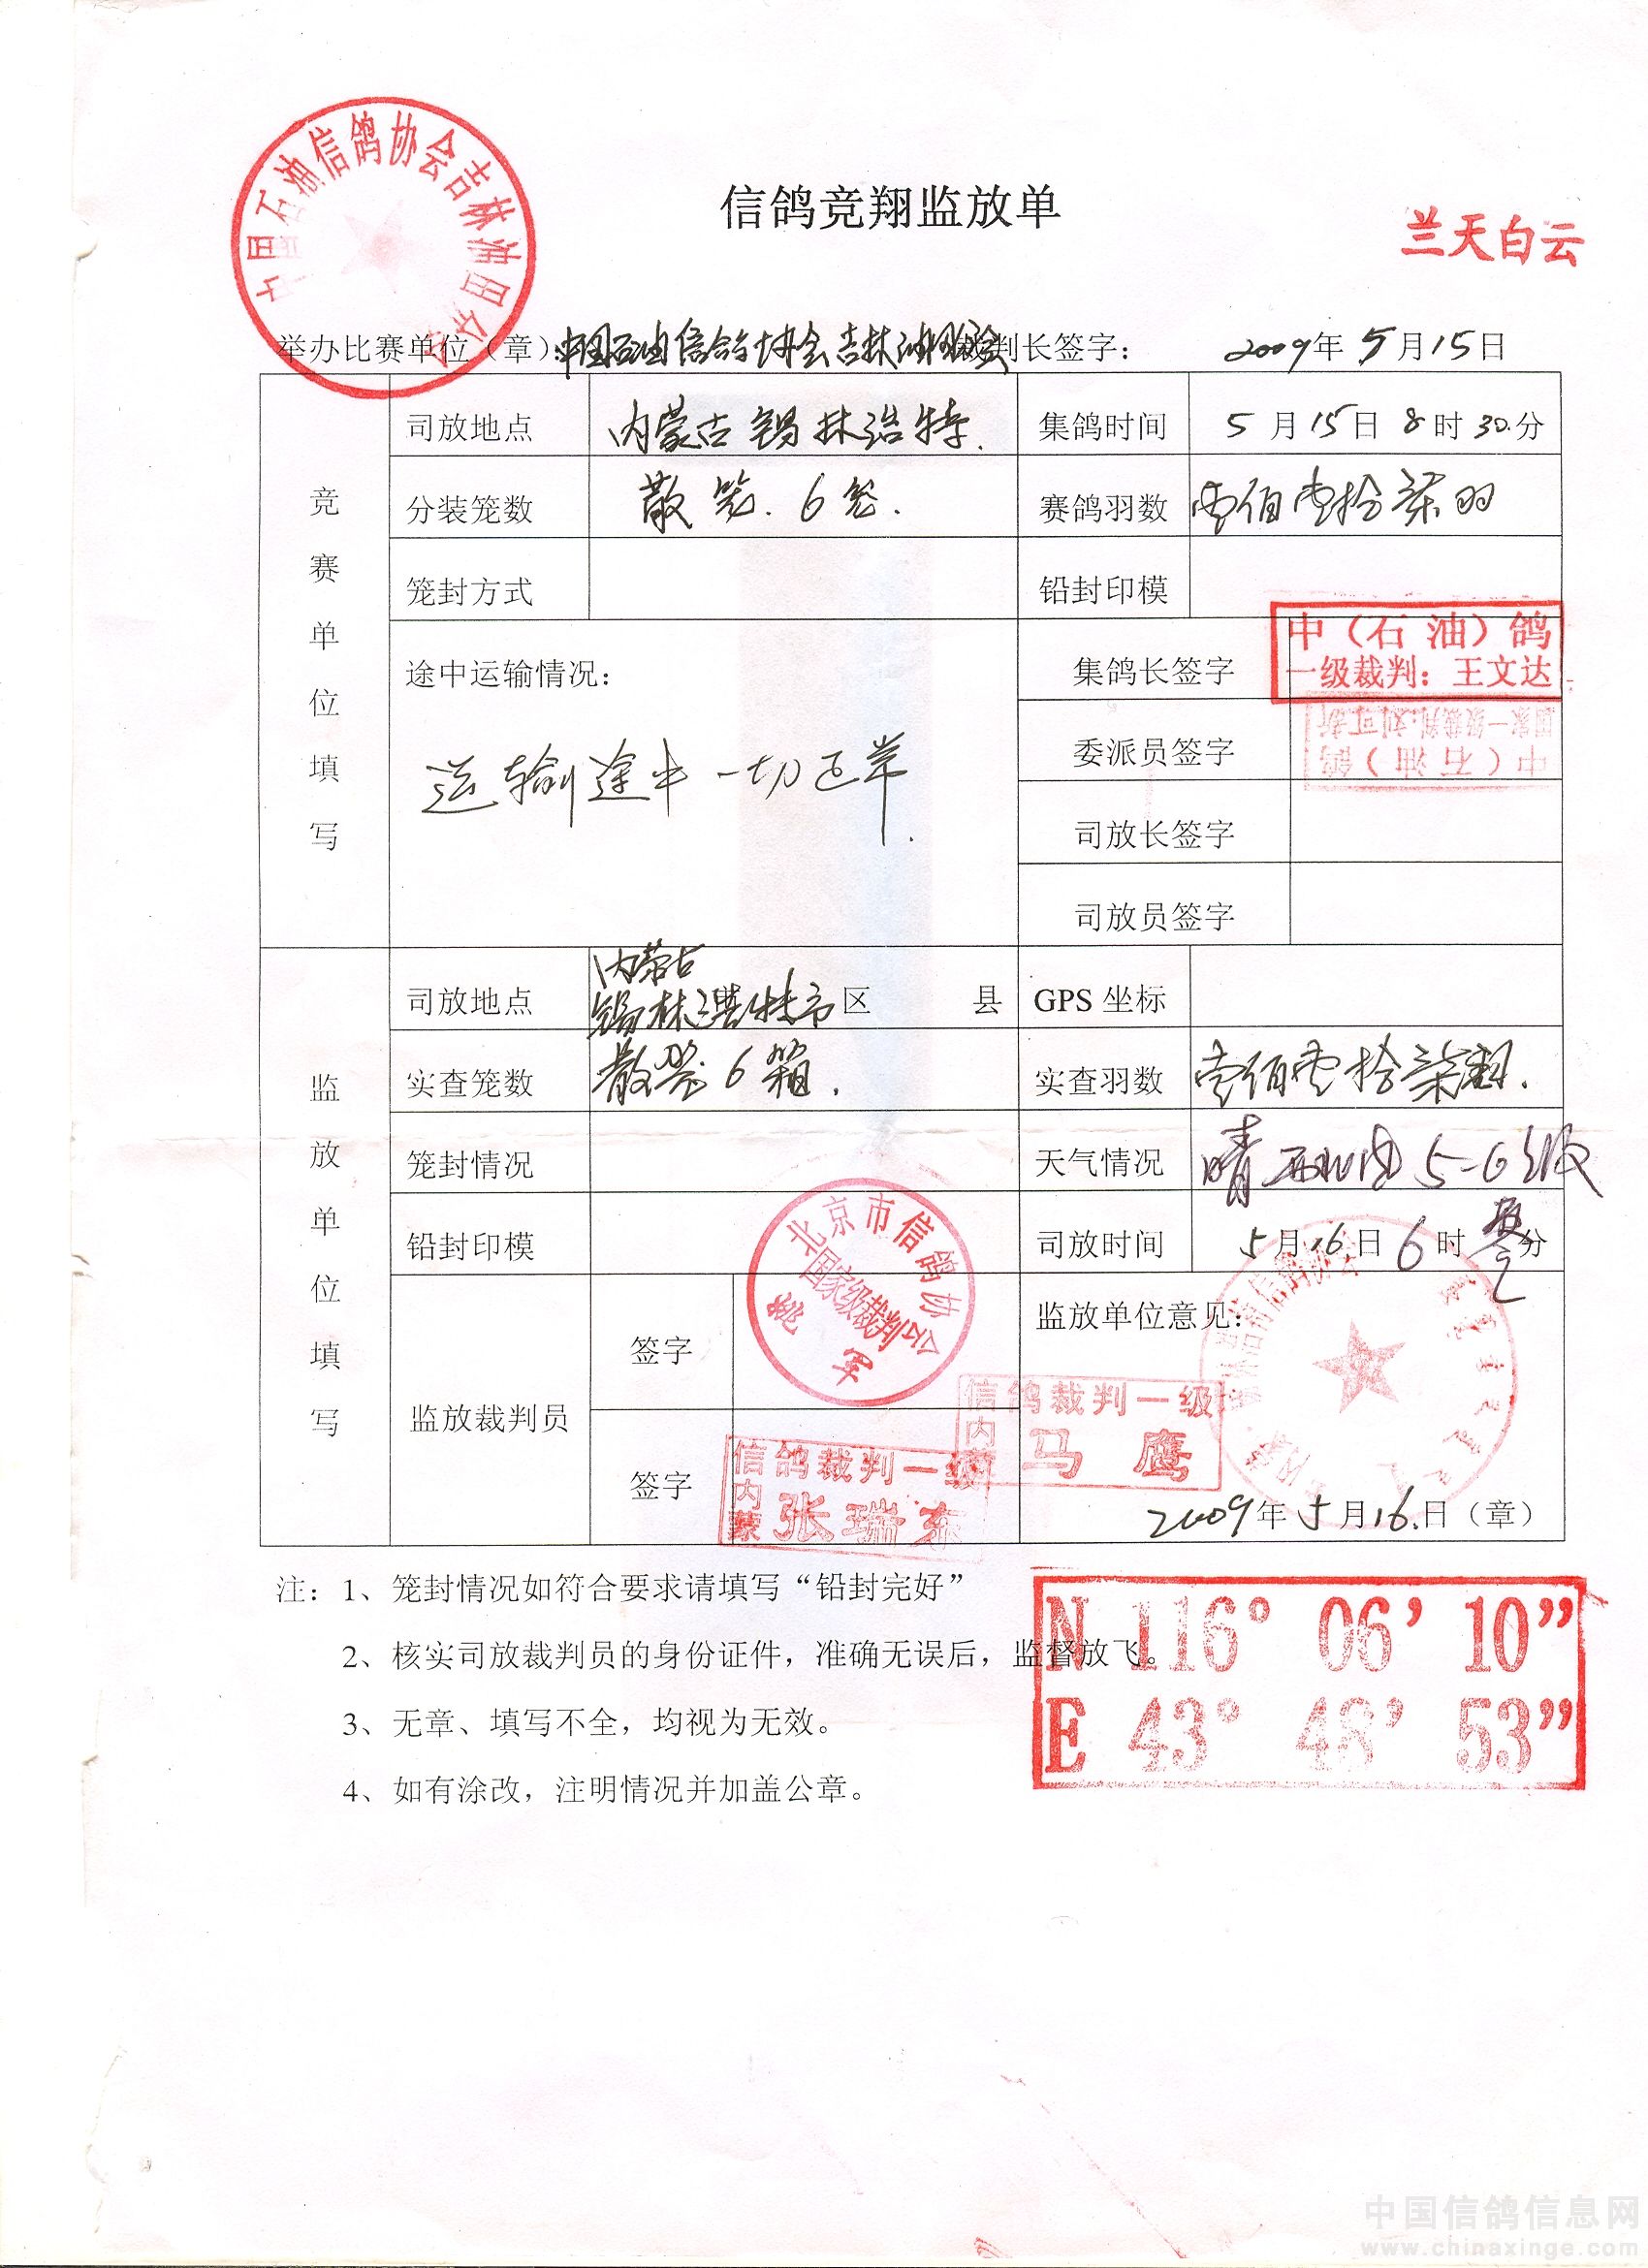 中国石油信鸽协会吉林油田分会
信鸽竞翔监放单
兰天白云
举办比赛单位（章）：中国石油信鸽协会吉林油田分会 裁判长签字： 2009年 5月15日
竞赛单位填写
司放地点 内蒙古锡林浩特. 集鸽时间 5月15日8时30分
分装笼数 散笼.6笼. 赛鸽羽数 壹佰壹拾柒羽
笼封方式 铅封印模
途中运输情况：
运输途中一切正常.
集鸽长签字
中（石油）鸽
一级裁判：王文达
委派员签字
中（石油）鸽
国家一级裁判：刘可新
司放长签字
司放员签字
监放单位填写
司放地点 内蒙古
锡林浩特市 区 县 GPS 坐标
实查笼数 散笼6箱. 实查羽数 壹佰壹拾柒羽.
笼封情况 天气情况 晴 西北风5-6级
铅封印模 司放时间 5月16日6时 分
监放裁判员 签字
北京市信鸽协会
国家级裁判
军
签字
信鸽裁判一级
内蒙 张瑞东
信鸽裁判一级
内 马鹰
监放单位意见：
2009年5月16日（章）
注：1、笼封情况如符合要求请填写“铅封完好”
2、核实司放裁判员的身份证件，准确无误后，监督放飞。
3、无章、填写不全，均视为无效。
4、如有涂改，注明情况并加盖公章。
N 116° 06’ 10”
E 43° 48’ 53”
中国信鸽信息网
www.chinaxinge.com